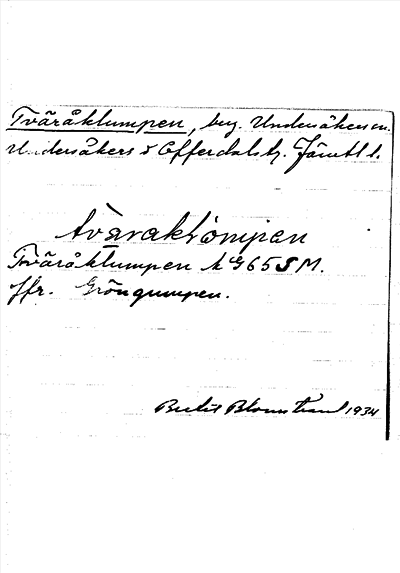 Tväråklumpen, berg. Undersåkers sn.
Undersåkers o Offerdals tg. Jämtl l.
Tväråklumpen KG65SM.
Jfr. Gröngumpen.
Bertil Blomstrand 1934